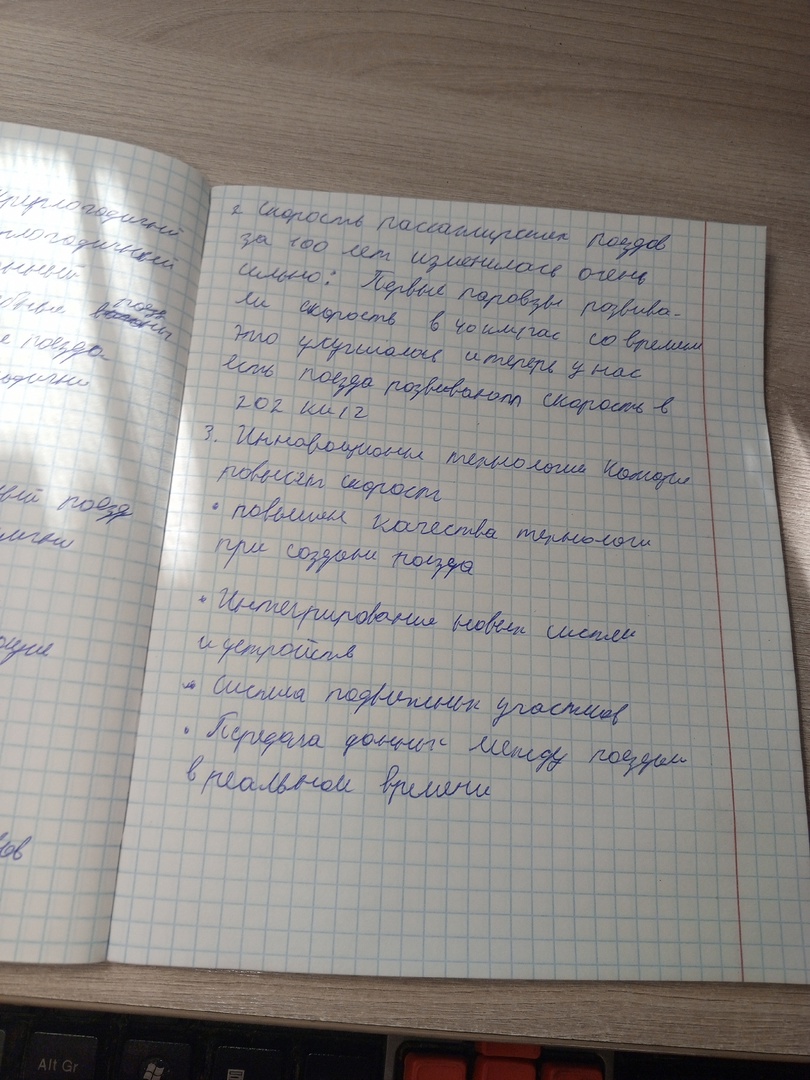 круглогодичный
глогодичный
нный
обные поезд
е поезда
одични
вый поезд
лични
ющие
ов
2 Скорость пассажирских поездов
за 100 лет изменилась очень
сильно: Первые паровзы развива-
ли скорость в 40км/час со временем
это улучшалось и теперь у нас
есть поезда развивают скорость в
202 км/г
3. Инновационые технологии Которые
повысят скорост
• повышен качества технологи
при создани поезда
• Интегрирование новых систем
и устройств
• Система подвижных участков
• Передача данных между поездом
в реальном времени
Alt Gr